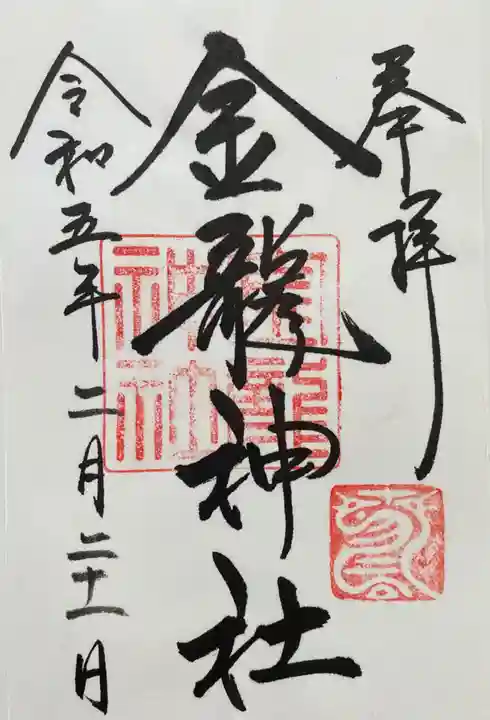 奉拝
金龍神社
令和五年二月二十一日